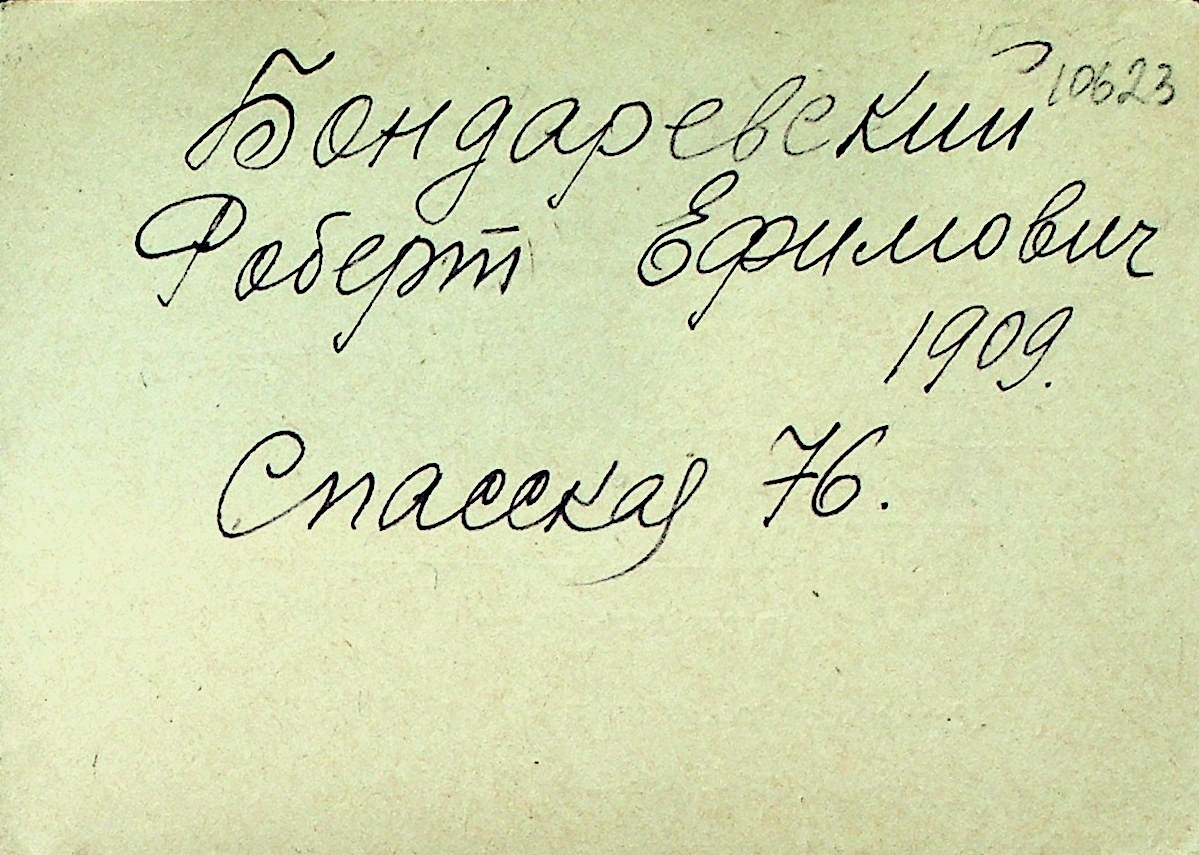 10623
Бондаревский
Роберт Ефимович
1909.
Спасская 76.